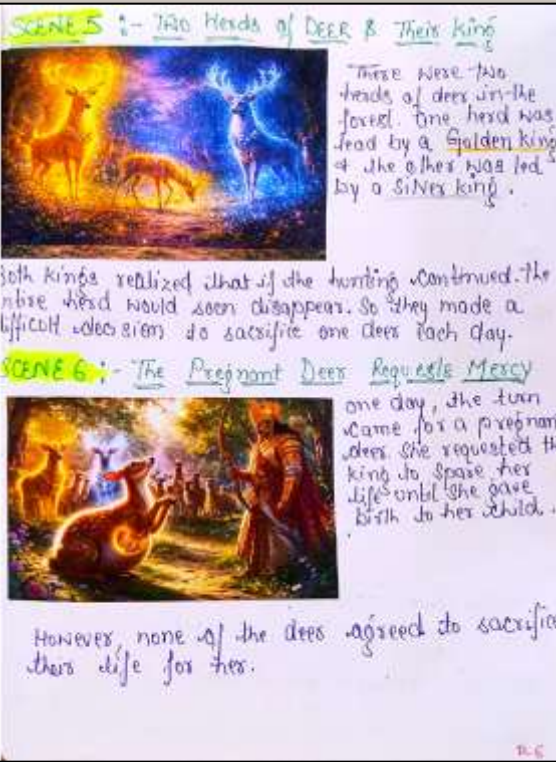 SCENE 5 :- Two Herds of DEER & Their King
There were two
herds of deer in the
forest. One herd was
lead by a Golden king
& the other was led
by a Silver king.
Both kings realized that if the hunting continued. The
entire herd would soon disappear. So they made a
difficult decision to sacrifice one deer each day.
SCENE 6 :- The Pregnant Deer Requests Mercy
one day, the turn
came for a pregnant
deer she requested the
king to spare her
life until she gave
birth to her child.
However, none of the deer agreed to sacrifice
their life for her.